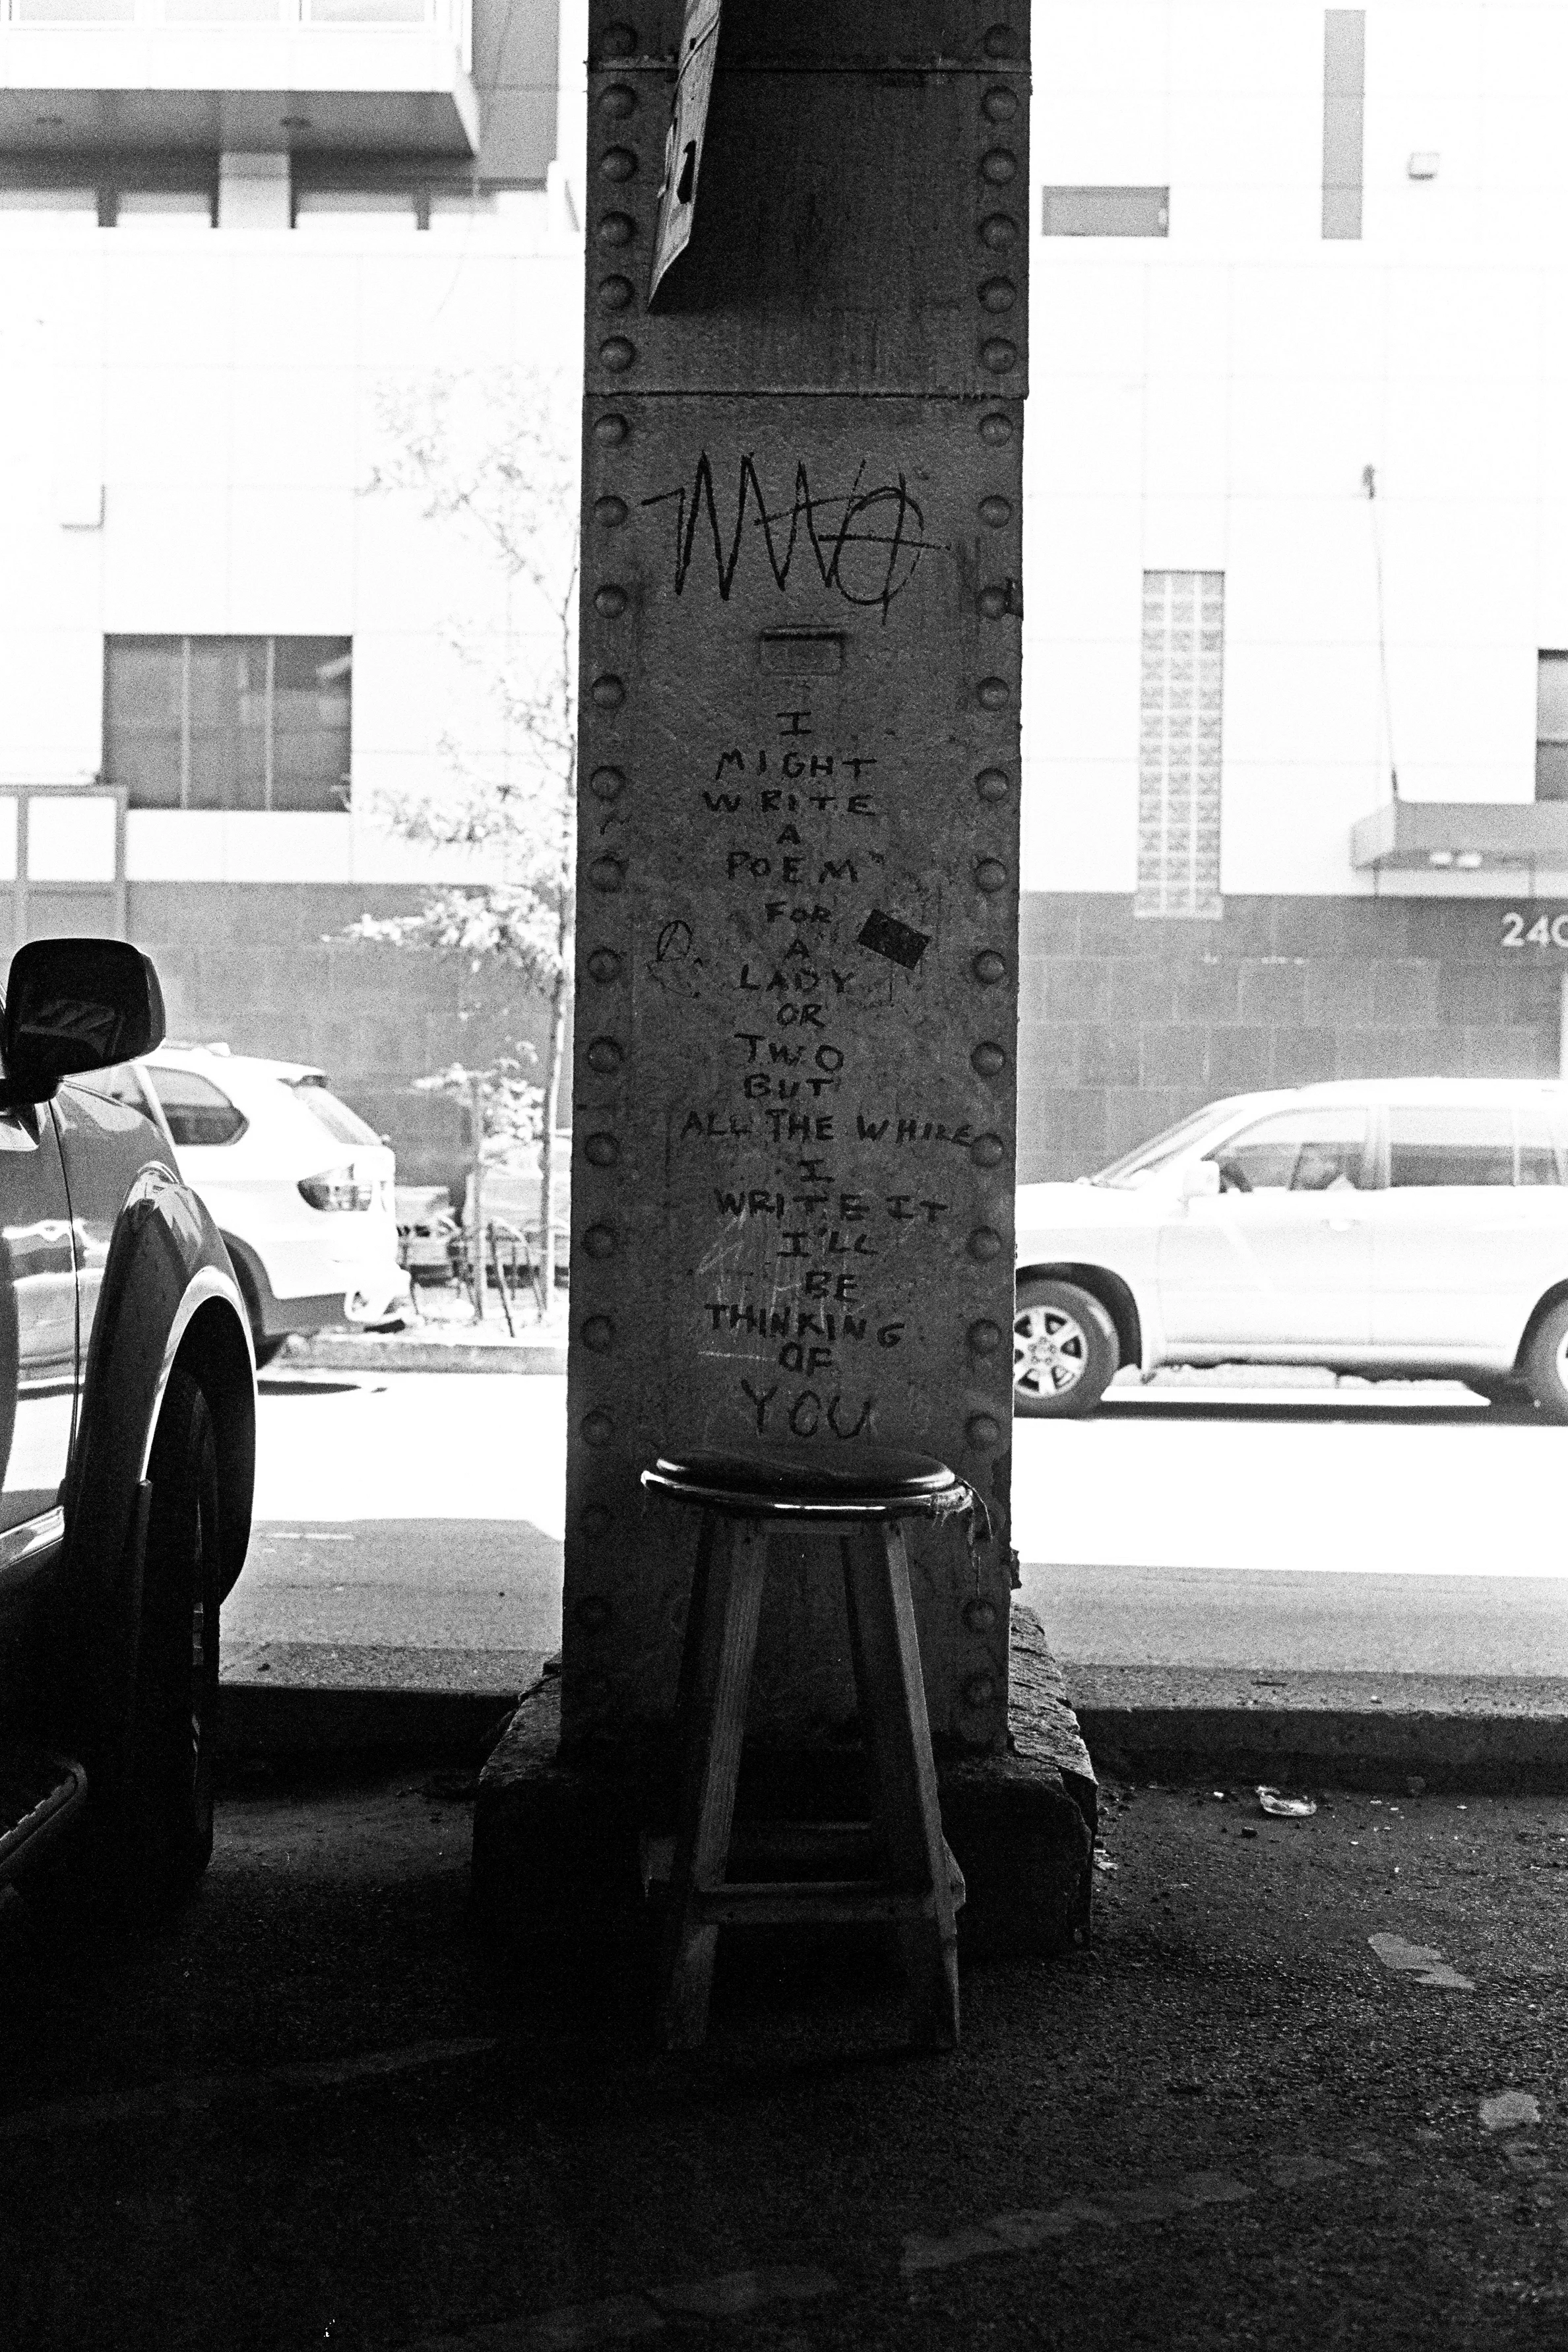 I
MIGHT
WRITE
A
POEM
FOR
A
LADY
OR
TWO
BUT
ALL THE WHILE
I
WRITE IT
I'LL
BE
THINKING
OF
YOU
240